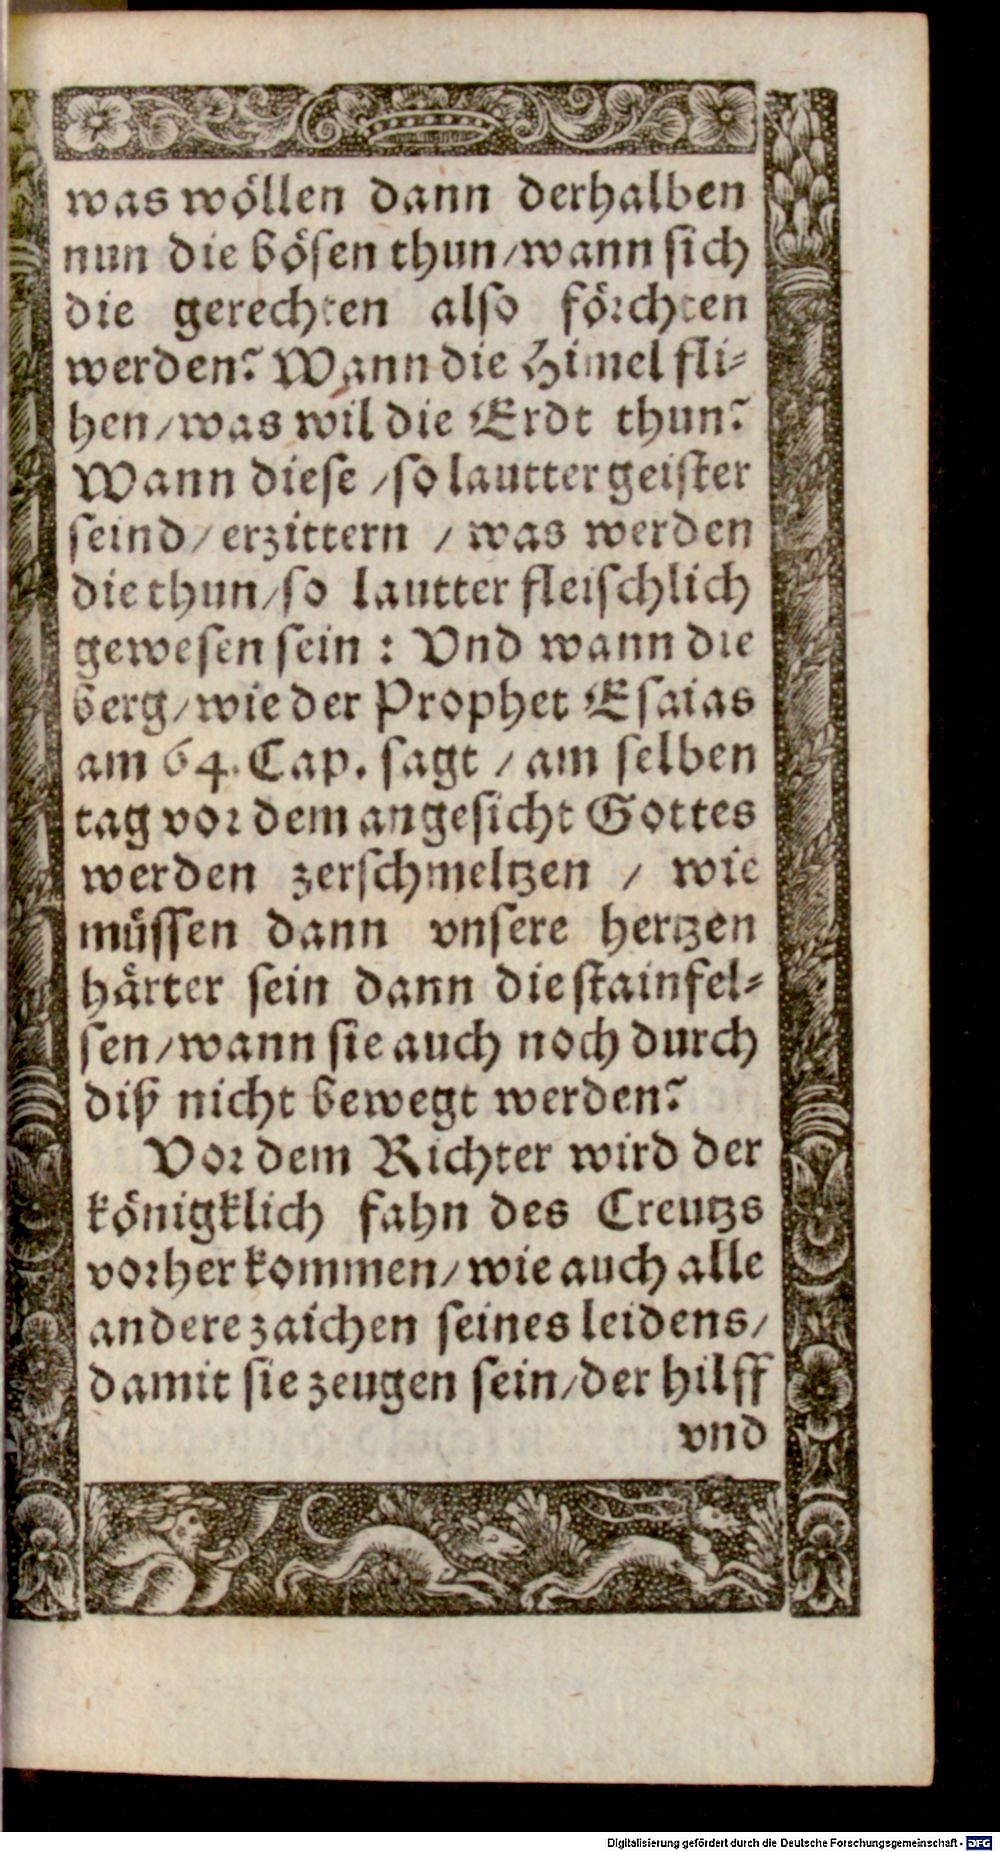 was wöllen dann derhalben
nun die bösen thun/wann sich
die gerechten also förchten
werden? Wann die Himel fli-
hen/was wil die Erdt thun?
Wann diese/so lautter geister
seind/erzittern/was werden
die thun/so lautter fleischlich
gewesen sein: Vnd wann die
berg/wie der Prophet Esaias
am 64. Cap. sagt/am selben
tag vor dem angesicht Gottes
werden zerschmeltzen/wie
müssen dann vnsere hertzen
härter sein dann die stainfel-
sen/wann sie auch noch durch
diß nicht bewegt werden?
Vor dem Richter wird der
königklich fahn des Creutzs
vorher kommen/wie auch alle
andere zaichen seines leidens/
damit sie zeugen sein/der hilff
vnd
Digitalisierung gefördert durch die Deutsche Forschungsgemeinschaft - DFG